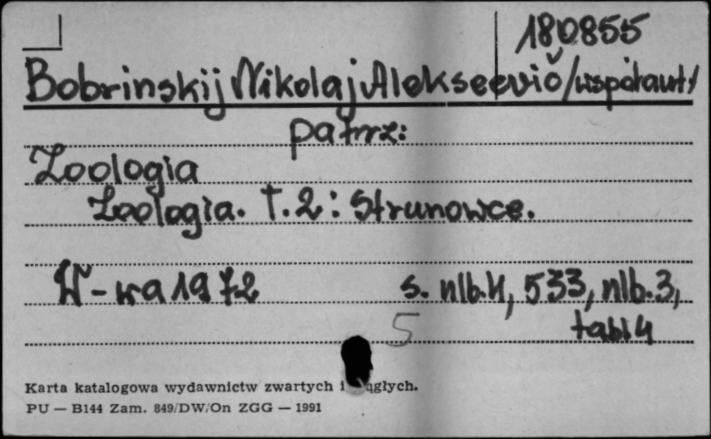 180855
Bobrinskij Nikolaj Alekseevič /współaut/
patrz:
Zoologia
Zoologia. T.2: Strunowce.
W-wa 1972 s. nlb.4, 533, nlb.3,
5 tabl 4
Karta katalogowa wydawnictw zwartych i ągłych.
PU — B144 Zam. 849/DW/On ZGG — 1991